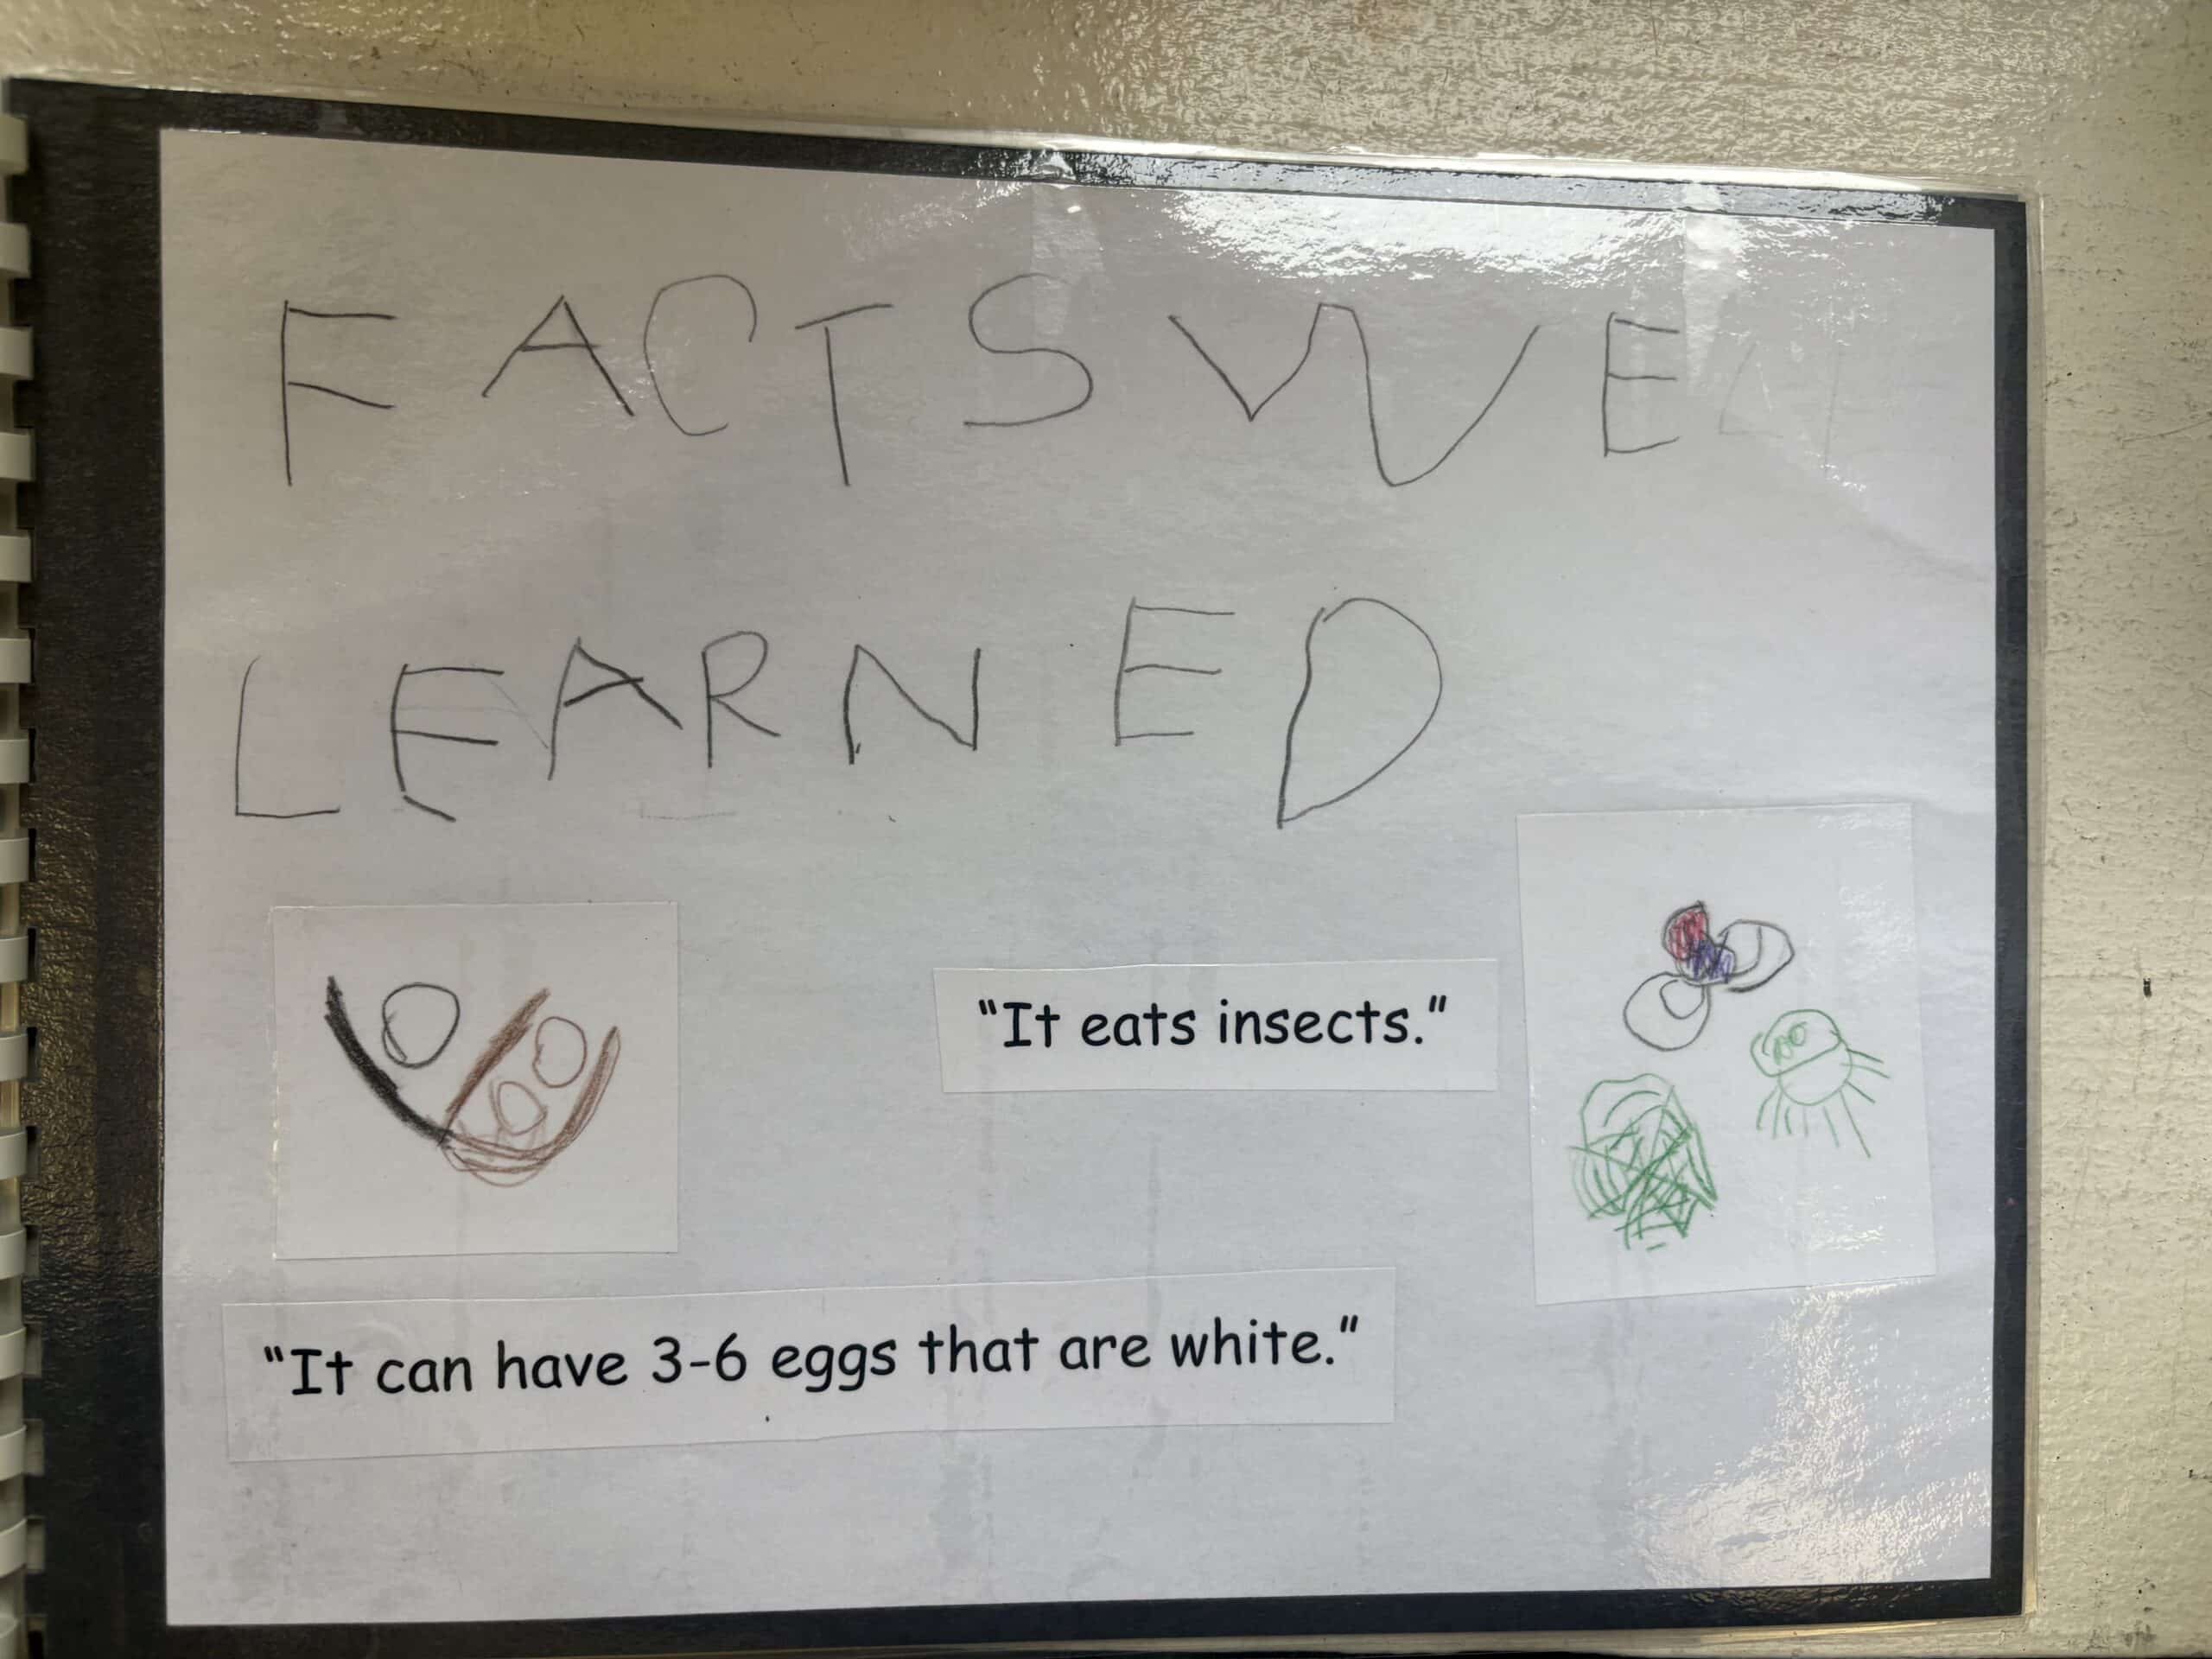 FACTS WE
LEARNED
"It eats insects."
"It can have 3-6 eggs that are white."